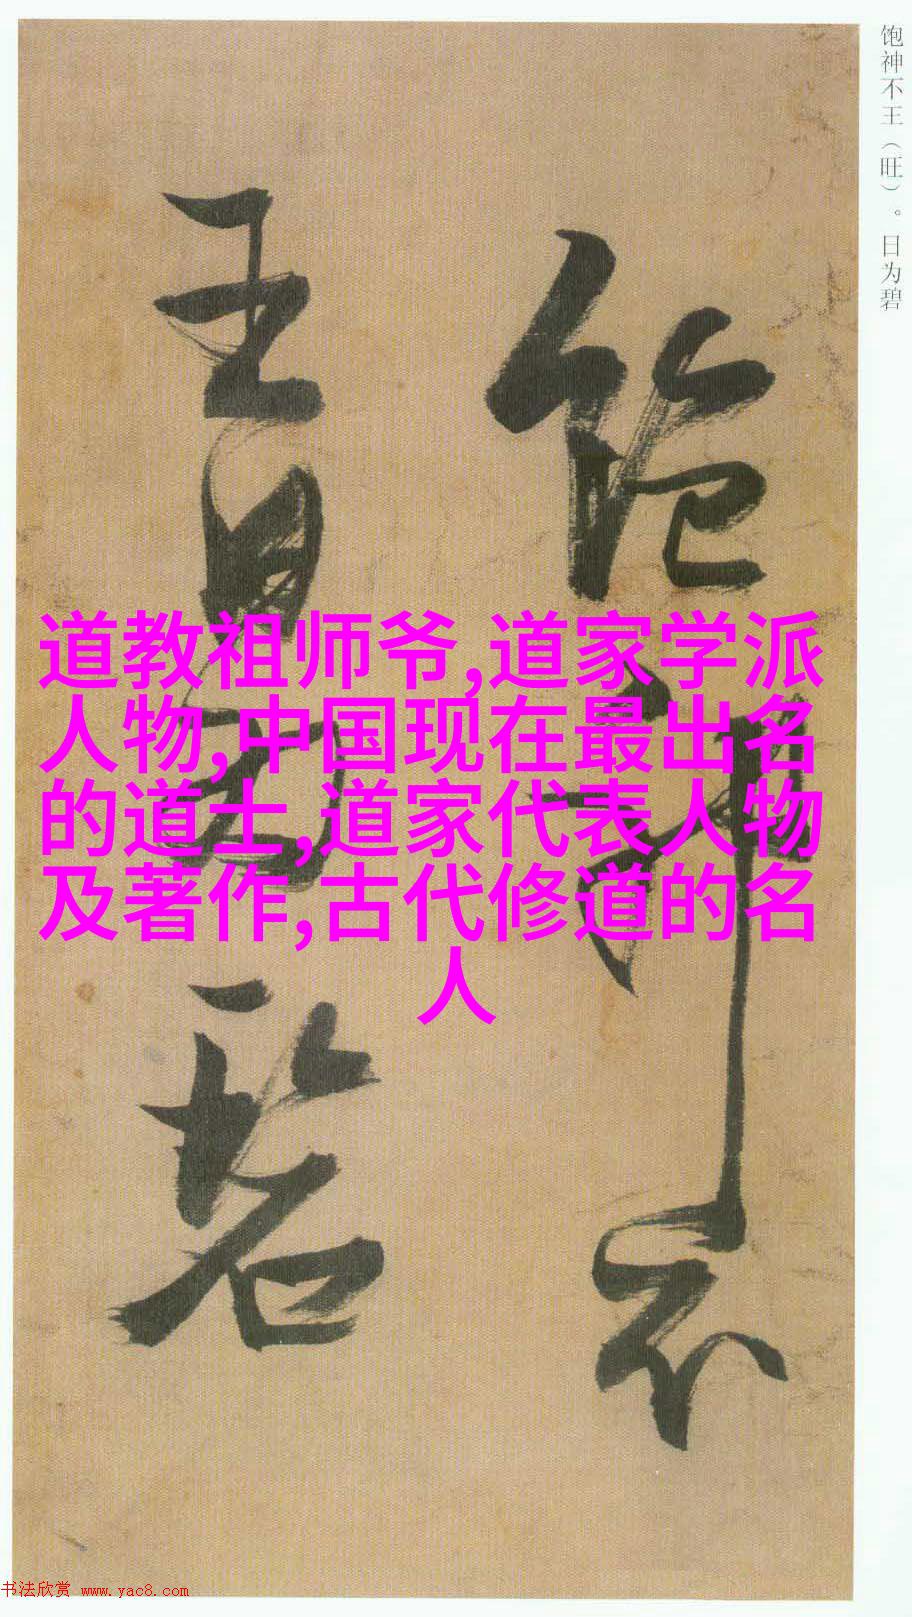 饱神不王（旺）。日为碧
饱神不
王日为碧
道教祖师爷,道家学派
人物,中国现在最出名
的道士,道家代表人物
及著作,古代修道的名
人
书法欣赏 www.yac8.com